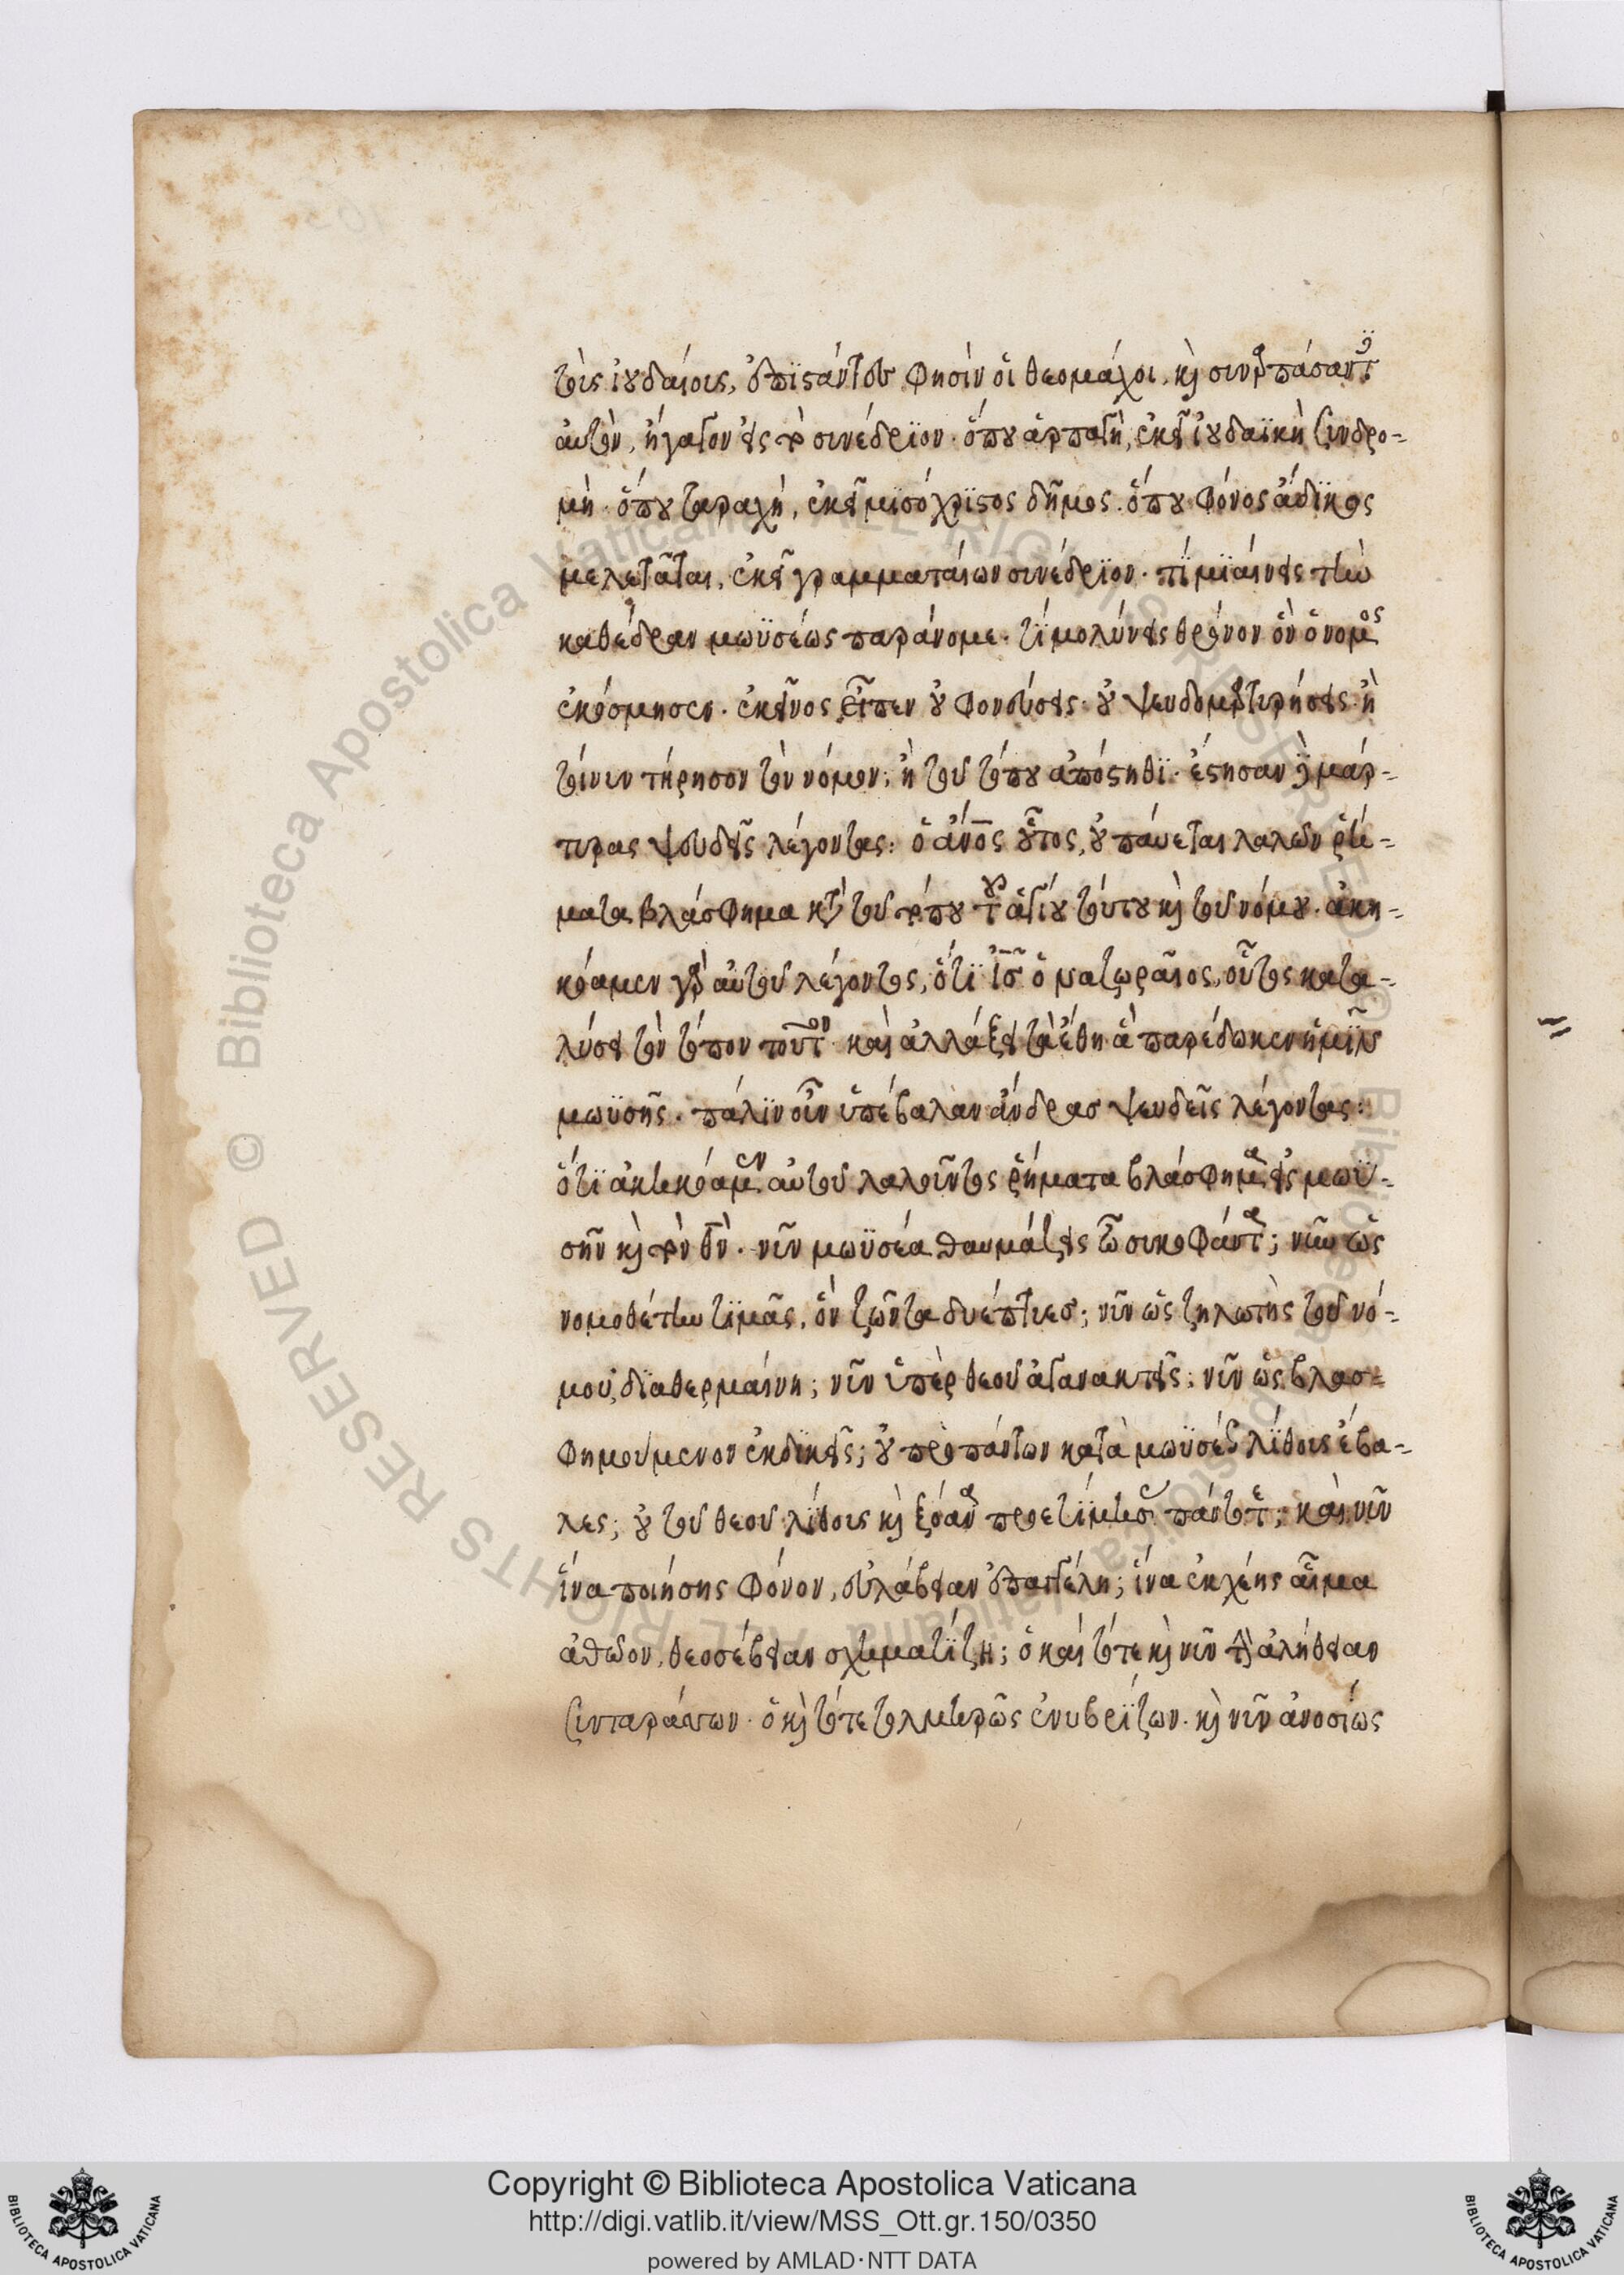 τοῖς ἰουδαίοις, ἐπιστάντες φησὶν οἱ θεομάχοι, κὶ συναρπάσαντες
αὐτὸν, ἤγαγον εἰς τὸ συνέδριον. ὅπου ἁρπαγὴ, ἐκεῖ ἰουδαϊκὴ συνδρο-
μὴ. ὅπου ταραχὴ, ἐκεῖ μισόχριστος δῆμος. ὅπου φόνος ἄδικος
μελετᾶται, ἐκεῖ γραμματαίων συνέδριον. τί μιαίνεις τὴν
καθέδραν μωϋσέως παράνομε. τί μολύνεις θρόνον ὃν ὁ νόμος
ἐκόσμησεν. ἐκεῖνος εἶπεν οὐ φονεύσεις. οὐ ψευδομαρτυρήσεις. ἢ
τοίνυν τήρησον τὸν νόμον, ἢ τοῦ τόπου ἀπόστηθι. ἔστησαν μάρ-
τυρας ψευδεῖς λέγοντας: ὁ ἄνος οὗτος, οὐ παύεται λαλῶν ῥή-
ματα βλάσφημα κατὰ τοῦ τόπου τοῦ ἁγίου τούτου κὶ τοῦ νόμου. ἀκη-
κόαμεν γὰρ αὐτοῦ λέγοντος, ὅτι ἰς ὁ ναζωραῖος, οὗτος κατα-
λύσει τὸν τόπον τοῦτον καὶ ἀλλάξει τὰ ἔθη ἃ παρέδωκεν ἡμῖν
μωϋσῆς. πάλιν οὖν ὑπέβαλαν ἄνδρας ψευδεῖς λέγοντας:
ὅτι ἀκηκόαμεν αὐτοῦ λαλοῦντος ῥήματα βλάσφημα εἰς μωϋ-
σῆν κὶ τὸν θν. νῦν μωϋσέα θαυμάζεις ὦ συκοφάντα; νῦν ὡς
νομοθέτην τιμᾶς, ὃν ζῶντα διέπτυες; νῦν ὡς ζηλωτὴς τοῦ νό-
μου, διαθερμαίνη; νῦν ὑπὲρ θεοῦ ἀγανακτεῖς; νῦν ὡς βλασ-
φημούμενον ἐκδικεῖς; οὐ πρὸ πάντων κατὰ μωϋσέως λίθοις ἔβα-
λες; οὐ τοῦ θεοῦ λίθοις κὶ ξόανα προετίμησας πάντοτε; καὶ νῦν
ἵνα ποιήσης φόνον, εὐλάβειαν ἐπαγγέλη; ἵνα ἐκχέης αἷμα
ἀθῶον, θεοσέβειαν σχηματίζη; ὁ καὶ τότε κὶ νῦν τὴν ἀλήθειαν
συνταράττων. ὁ κὶ τότε τολμηρῶς ἐνυβρίζων. κὶ νῦν ἀνοσίως
Copyright © Biblioteca Apostolica Vaticana
http://digi.vatlib.it/view/MSS_Ott.gr.150/0350
powered by AMLAD·NTT DATA